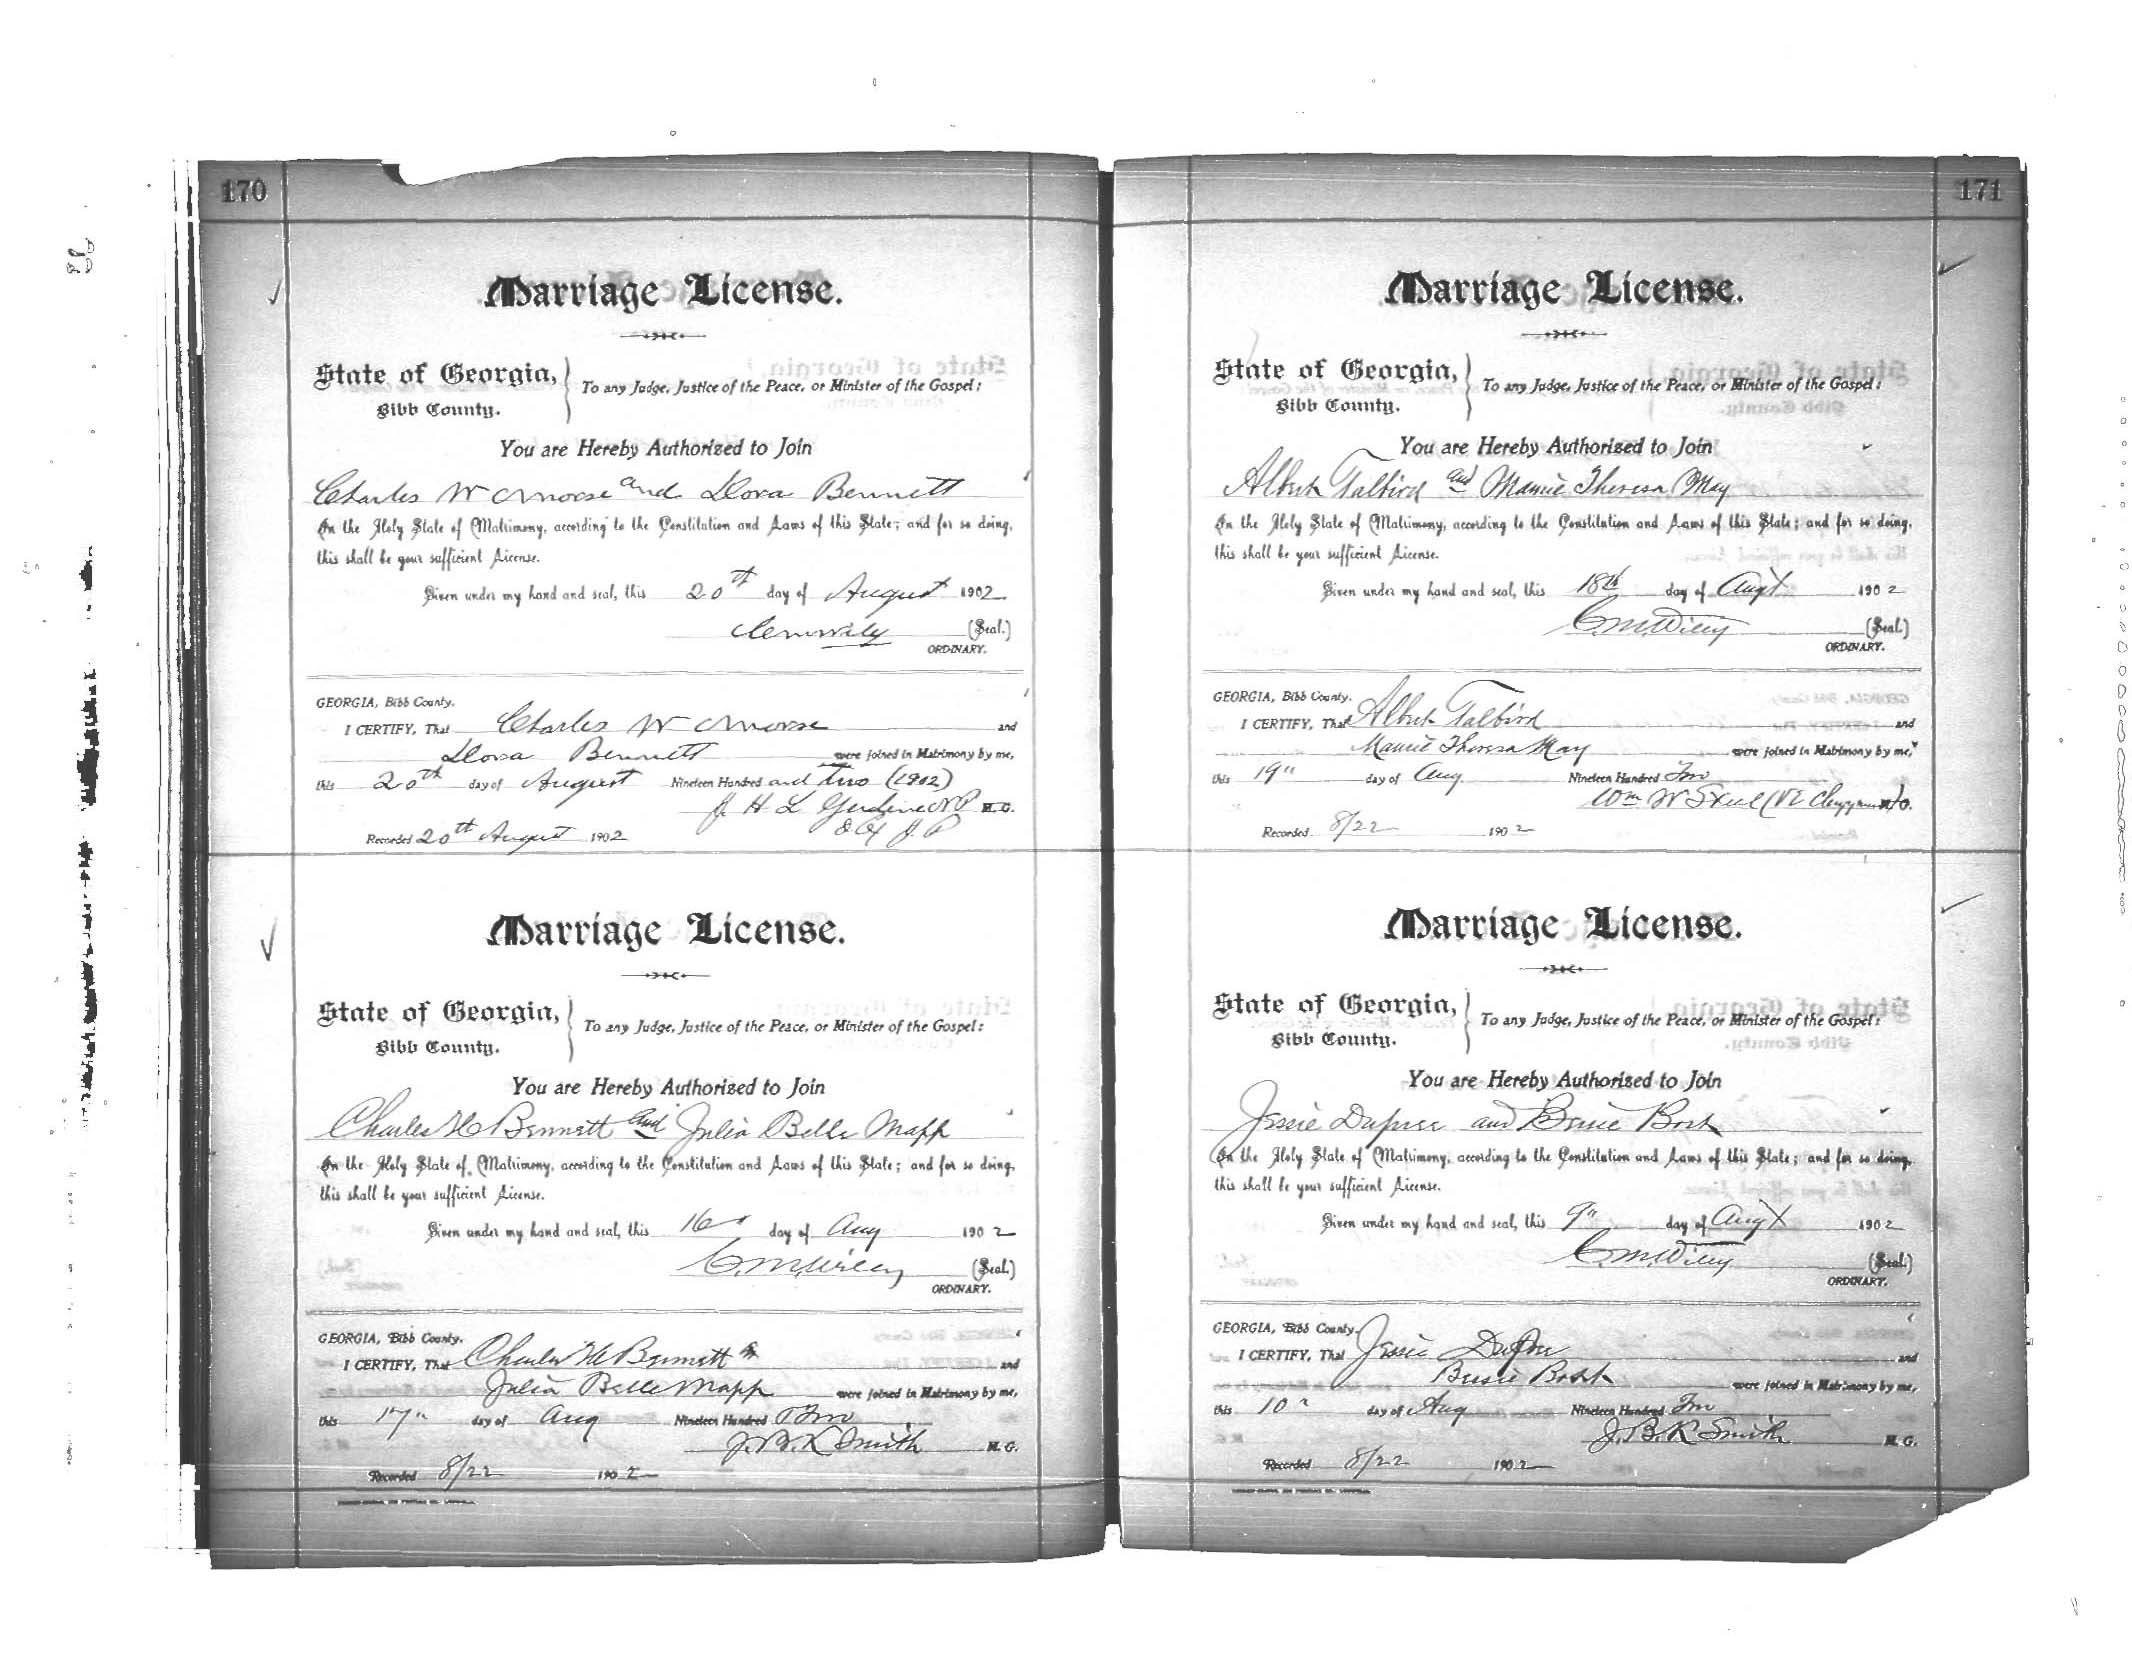 170
Marriage License.
State of Georgia,
Bibb County.
To any Judge, Justice of the Peace, or Minister of the Gospel:
You are Hereby Authorized to Join
Charles W Morse and Dora Bennett
In the Holy State of Matrimony, according to the Constitution and Laws of this State; and for so doing,
this shall be your sufficient License.
Given under my hand and seal, this 20th day of August 1902
CMWiley (Seal.)
ORDINARY.
GEORGIA, Bibb County.
I CERTIFY, That Charles W Morse and
Dora Bennett were joined in Matrimony by me,
this 20th day of August Nineteen Hundred and two (1902)
J. H. L. Gerdine N P M. G.
J. P
Recorded 20th August 1902
Marriage License.
State of Georgia,
Bibb County.
To any Judge, Justice of the Peace, or Minister of the Gospel:
You are Hereby Authorized to Join
Charles H Bennett and Julia Belle Mapp
In the Holy State of Matrimony, according to the Constitution and Laws of this State; and for so doing,
this shall be your sufficient License.
Given under my hand and seal, this 16" day of Aug 1902
C.M.Wiley (Seal.)
ORDINARY.
GEORGIA, Bibb County.
I CERTIFY, That Charles H Bennett and
Julia Belle Mapp were joined in Matrimony by me,
this 17" day of Aug Nineteen Hundred Two
Smith M. G.
Recorded 8/22 1902
171
Marriage License.
State of Georgia,
Bibb County.
To any Judge, Justice of the Peace, or Minister of the Gospel:
You are Hereby Authorized to Join
Albert Talbird and Mamie Theresa May
In the Holy State of Matrimony, according to the Constitution and Laws of this State; and for so doing,
this shall be your sufficient License.
Given under my hand and seal, this 18th day of Augt 1902
C.M.Wiley (Seal.)
ORDINARY.
GEORGIA, Bibb County.
I CERTIFY, That Albert Talbird and
Mamie Theresa May were joined in Matrimony by me,
this 19" day of Aug Nineteen Hundred Two
Wm W Steel (P E Clergyman) M. G.
Recorded 8/22 1902
Marriage License.
State of Georgia,
Bibb County.
To any Judge, Justice of the Peace, or Minister of the Gospel:
You are Hereby Authorized to Join
Jessie Dupree and
In the Holy State of Matrimony, according to the Constitution and Laws of this State; and for so doing,
this shall be your sufficient License.
Given under my hand and seal, this 9" day of Augt 1902
C.M.Wiley (Seal.)
ORDINARY.
GEORGIA, Bibb County.
I CERTIFY, That Jessie Dupree and
were joined in Matrimony by me,
this 10" day of Aug Nineteen Hundred Two
J.B.R Smith M. G.
Recorded 8/22 1902